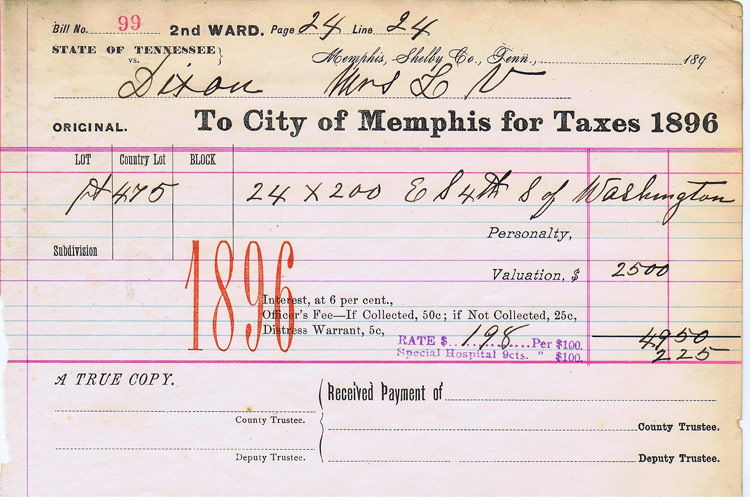 Bill No. 99 2nd WARD. Page 24 Line 24
STATE OF TENNESSEE }
vs.
Memphis, Shelby Co., Tenn., 189
Dixon Mrs L V
ORIGINAL. To City of Memphis for Taxes 1896
LOT Country Lot BLOCK
pt 475 24 x 200 E S 4th S of Washington
Personalty,
Subdivision
Valuation, $ 2500
1896
Interest, at 6 per cent.,
Officer's Fee—If Collected, 50c; if Not Collected, 25c,
Distress Warrant, 5c,
RATE $ 198 Per $100. 4950
Special Hospital 9cts. " $100. 225
A TRUE COPY. Received Payment of
County Trustee. County Trustee.
Deputy Trustee. Deputy Trustee.